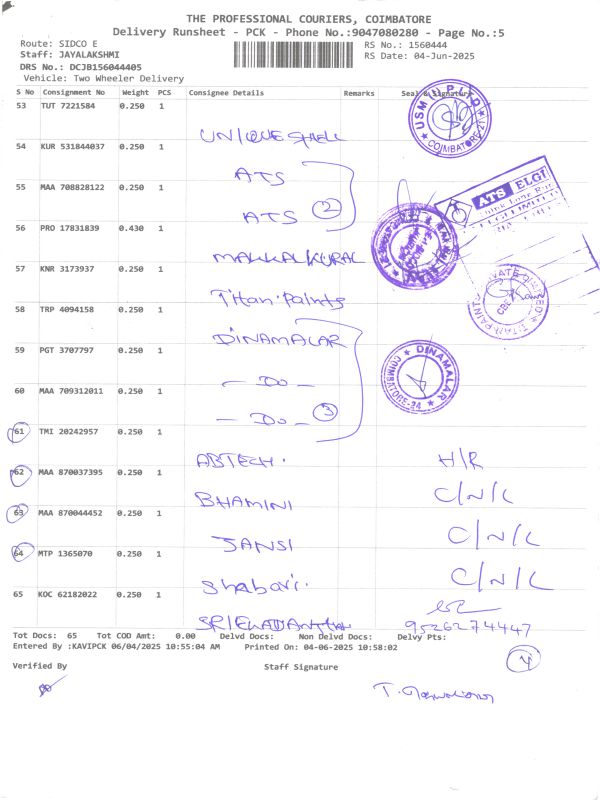 THE PROFESSIONAL COURIERS, COIMBATORE
Delivery Runsheet - PCK - Phone No.:9047080280 - Page No.:5
Route: SIDCO E
RS No.: 1560444
Staff: JAYALAKSHMI
RS Date: 04-Jun-2025
DRS No.: DCJB156044405
Vehicle: Two Wheeler Delivery
S No Consignment No Weight PCS Consignee Details Remarks Seal & Signature
53 TUT 7221584 0.250 1
UNIQUE SHELL
54 KUR 531844037 0.250 1
ATS
55 MAA 708828122 0.250 1
ATS 2
56 PRO 17831839 0.430 1
MAKKALKURAL
57 KNR 3173937 0.250 1
Titan Paints
58 TRP 4094158 0.250 1
DINAMALAR
59 PGT 3707797 0.250 1
- Do -
60 MAA 709312011 0.250 1
- Do - 3
61 TMI 20242957 0.250 1
ABTECH. H/R
62 MAA 870037395 0.250 1
BHAMINI C/N/L
63 MAA 870044452 0.250 1
JANSI C/N/L
64 MTP 1365070 0.250 1
Shabari. C/N/L
65 KOC 62182022 0.250 1
9526274447
Tot Docs: 65 Tot COD Amt: 0.00 Delvd Docs: Non Delvd Docs: Delvy Pts:
Entered By :KAVIPCK 06/04/2025 10:55:04 AM Printed On: 04-06-2025 10:58:02
4
Verified By
Staff Signature
COIMBATORE-21
ATS ELGI
DINAMALAR
COIMBATORE-24